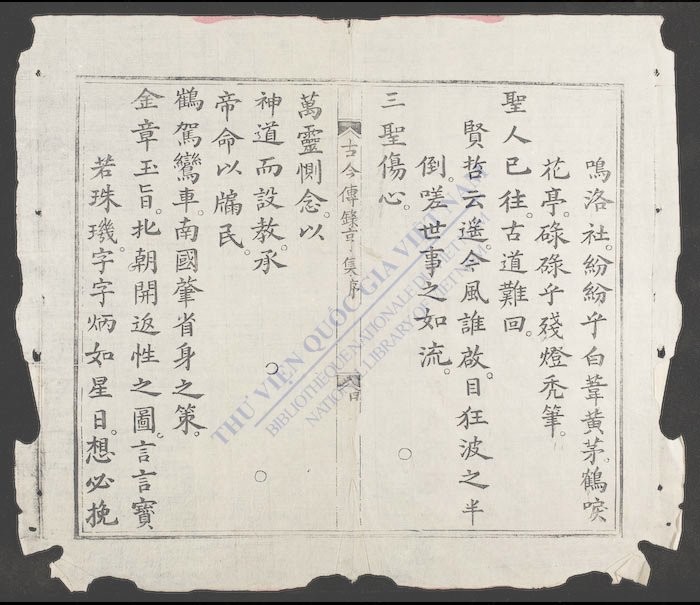 鳴洛社。紛紛乎白葦黄茅。鶴唳
花亭。碌碌乎殘燈禿筆。
聖人已往。古道難回。
賢哲云遙。今風誰啟。目狂波之半
倒。嗟世事之如流。
三聖傷心。
古今傳錄亨集序
萬靈惻念。以
神道而設教。承
帝命以牖民。
鶴駕鸞車。南國肇省身之策。
金章玉旨。北朝開返性之圖。言言寶
若珠璣。字字炳如星日。想必挽
THƯ VIỆN QUỐC GIA VIỆT NAM
BIBLIOTHÈQUE NATIONALE DU VIET NAM
NATIONAL LIBRARY OF VIETNAM